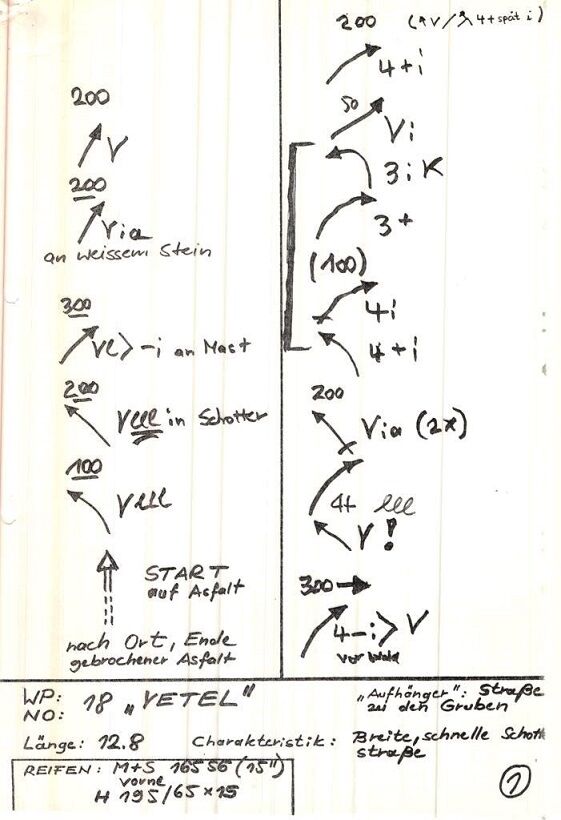 200
V
200
Via
an weissem Stein
300
Vl > -i an Mast
200
Vlll in Schotter
100
Vlll
START
auf Asfalt
nach Ort, Ende
gebrochener Asfalt
200 (↖V/ 4+spät i)
4+i
50
Vi
3iK
3+
(100)
4i
4+i
200
Via (2x)
4+ lll
V!
300 →
4-i > V
vor Wald
WP: 18 „YETEL"
NO:
„Aufhänger": Straße
zu den Gruben
Länge: 12.8 Charakteristik: Breite, schnelle Schott
straße
REIFEN: M+S 16556 (15")
vorne
H 195/65x15
1